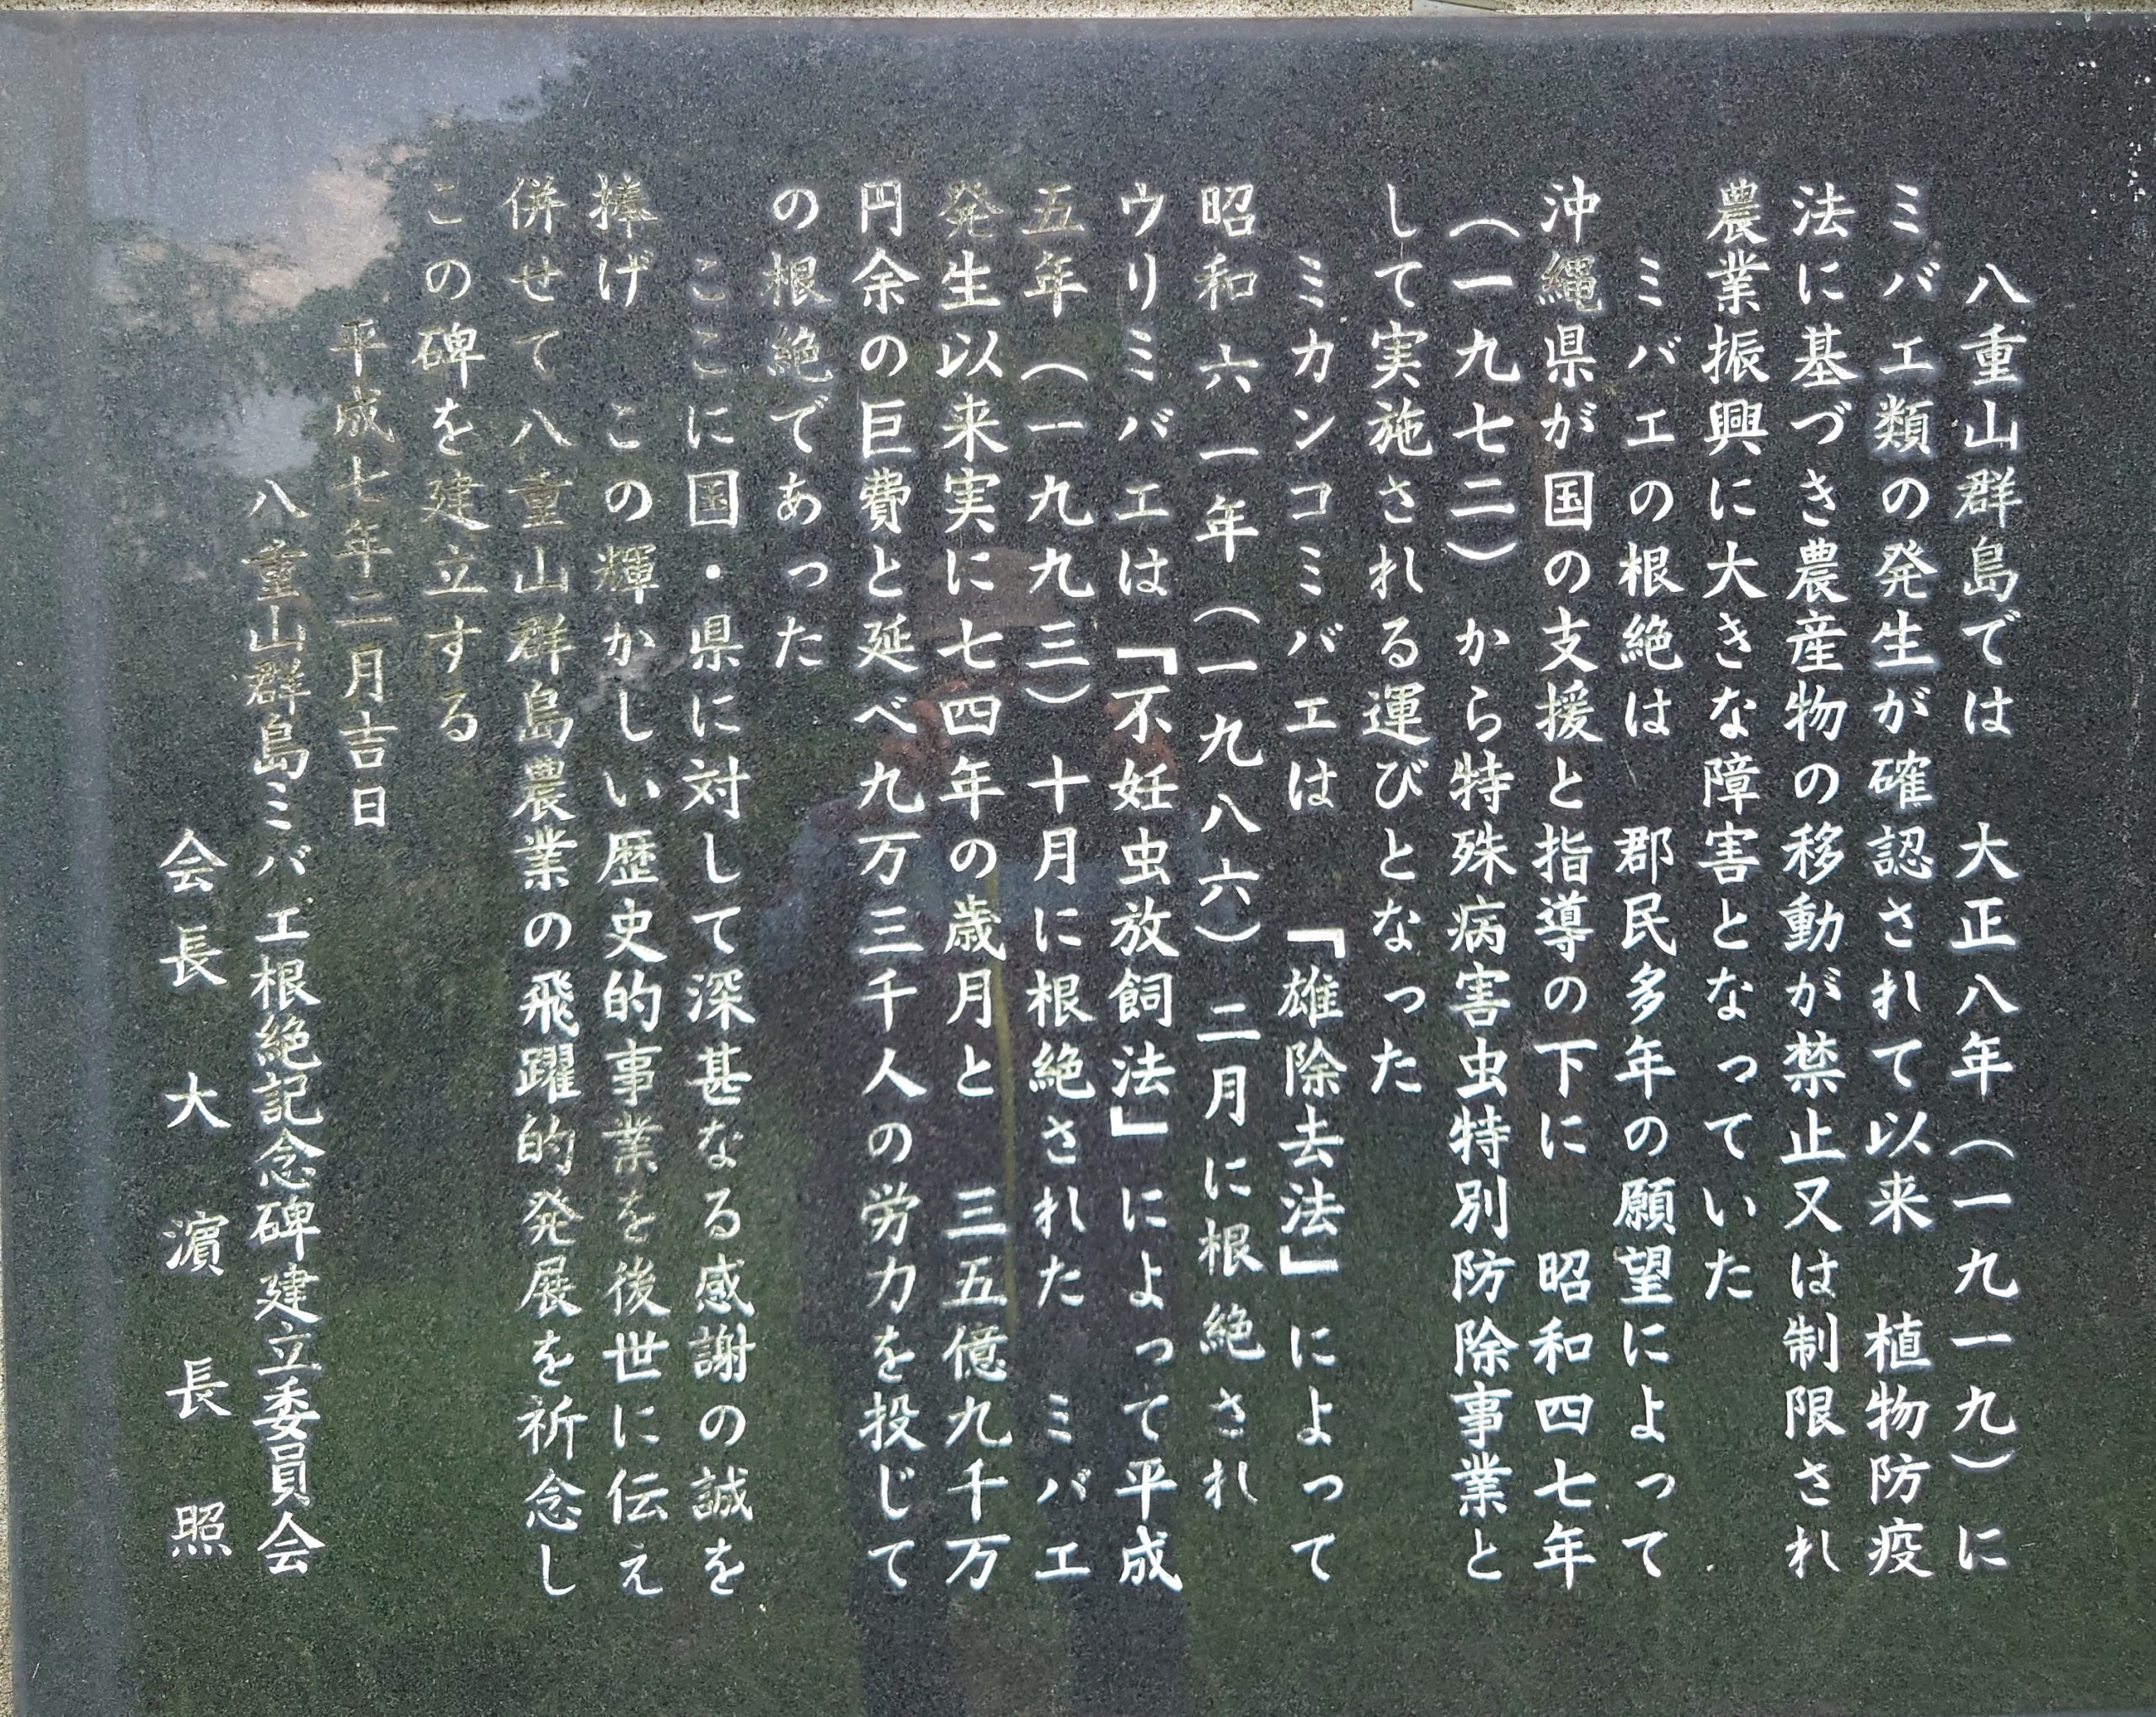 八重山群島では　大正八年（一九一九）に
ミバエ類の発生が確認されて以来　植物防疫
法に基づき農産物の移動が禁止又は制限され
農業振興に大きな障害となっていた
ミバエの根絶は　郡民多年の願望によって
沖縄県が国の支援と指導の下に　昭和四七年
（一九七二）から特殊病害虫特別防除事業と
して実施される運びとなった
ミカンコミバエは　『雄除去法』によって
昭和六一年（一九八六）二月に根絶され
ウリミバエは『不妊虫放飼法』によって平成
五年（一九九三）十月に根絶された　ミバエ
発生以来実に七四年の歳月と　三五億九千万
円余の巨費と延べ九万三千人の労力を投じて
の根絶であった
ここに国・県に対して深甚なる感謝の誠を
捧げ　この輝かしい歴史的事業を後世に伝え
併せて八重山群島農業の飛躍的発展を祈念し
この碑を建立する
平成七年二月吉日
八重山群島ミバエ根絶記念碑建立委員会
会長　大濵長照